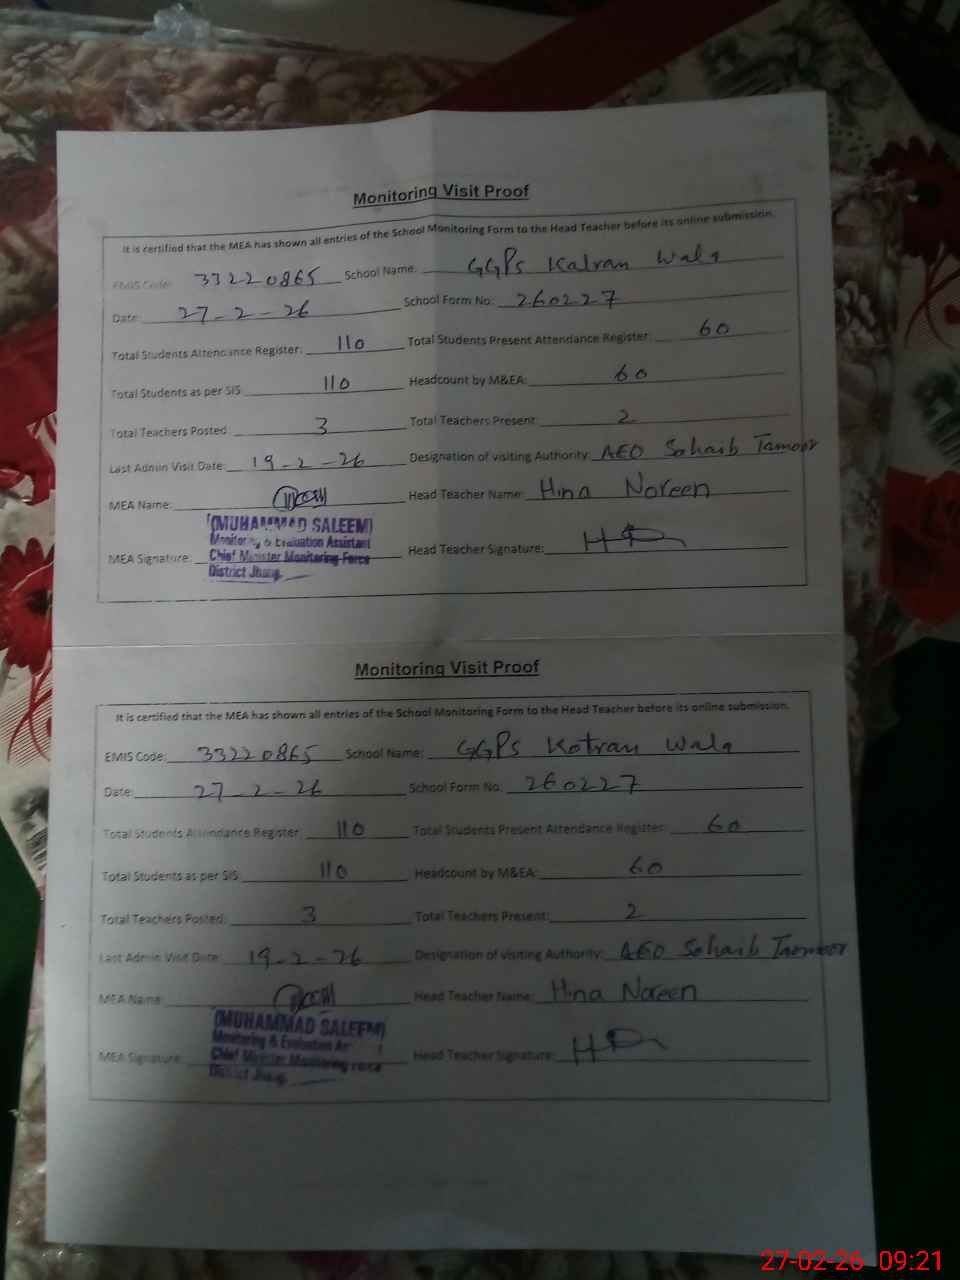 Monitoring Visit Proof
It is certified that the MEA has shown all entries of the School Monitoring Form to the Head Teacher before its online submission.
EMIS Code: 33220865 School Name: GGPS Katran Wala
Date: 27-2-26 School Form No: 260227
Total Students Attendance Register: 110 Total Students Present Attendance Register: 60
Total Students as per SIS: 110 Headcount by M&EA: 60
Total Teachers Posted: 3 Total Teachers Present: 2
Last Admin Visit Date: 19-2-26 Designation of visiting Authority: AEO Sohaib Tamoor
MEA Name: Head Teacher Name: Hina Noreen
(MUHAMMAD SALEEM)
Monitoring & Evaluation Assistant
MEA Signature: Chief Minister Monitoring Force Head Teacher Signature:
District Jhang
Monitoring Visit Proof
It is certified that the MEA has shown all entries of the School Monitoring Form to the Head Teacher before its online submission.
EMIS Code: 33220865 School Name: GGPS Kotran Wala
Date: 27-2-26 School Form No: 260227
Total Students Attendance Register: 110 Total Students Present Attendance Register: 60
Total Students as per SIS: 110 Headcount by M&EA: 60
Total Teachers Posted: 3 Total Teachers Present: 2
Last Admin Visit Date: 19-2-26 Designation of visiting Authority: AEO Sohaib Taemoor
MEA Name: Head Teacher Name: Hina Noreen
(MUHAMMAD SALEEM)
Monitoring & Evaluation
MEA Signature: Chief Minister Monitoring Force Head Teacher Signature:
District Jhang
27-02-26 09:21